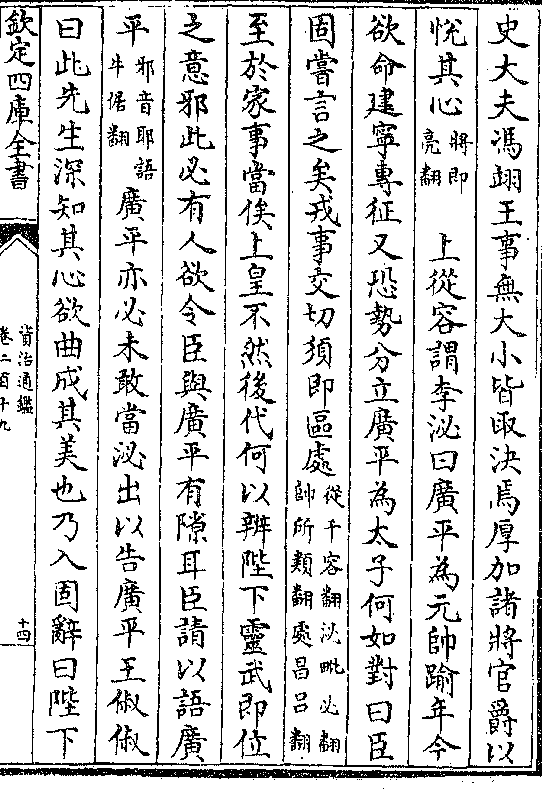 史大夫馮翊王事無大小皆取決焉厚加諸將官爵以
悅其心將即亮翻 上從容謂李泌曰廣平為元帥踰年今
欲命建寧專征又恐勢分立廣平為太子何如對曰臣
固嘗言之矣戎事交切須即區處從千容翻泌毗必翻帥所類翻處昌呂翻
至於家事當俟上皇不然後代何以辨陛下靈武即位
之意邪此必有人欲令臣與廣平有隙耳臣請以語廣
平邪音耶語牛倨翻廣平亦必未敢當泌出以告廣平王俶俶
曰此先生深知其心欲曲成其美也乃入固辭曰陛下
欽定四庫全書
資治通鑑
卷二百十九
十四